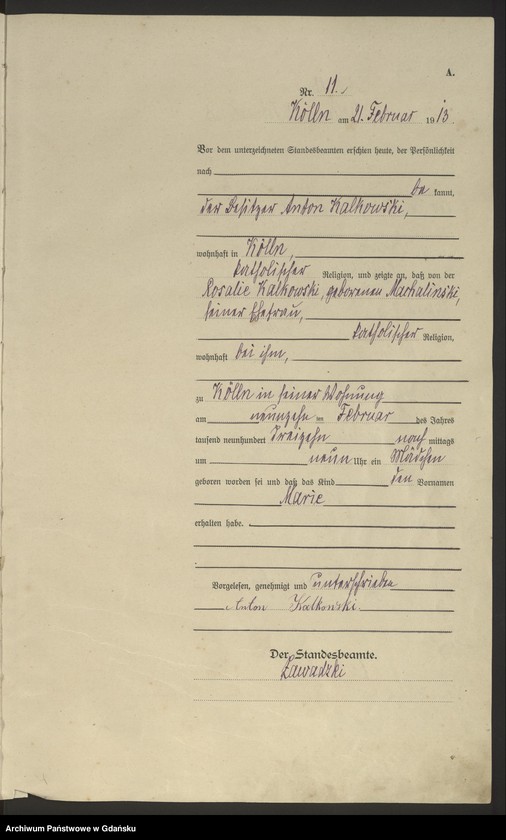 A.
Nr. 11.
Kölln am 21. Februar 1913.
Vor dem unterzeichneten Standesbeamten erschien heute, der Persönlichkeit
nach
be kannt,
der Besitzer Anton Kalkowski,
wohnhaft in Kölln,
katholischer Religion, und zeigte an, daß von der
Rosalie Kalkowski, geborenen Machalinski,
seiner Ehefrau,
katholischer Religion,
wohnhaft bei ihm,
zu Kölln in seiner Wohnung
am neunzehn ten Februar des Jahres
tausend neunhundert dreizehn nach mittags
um neun Uhr ein Mädchen
geboren worden sei und daß das Kind den Vornamen
Marie
erhalten habe.
Vorgelesen, genehmigt und unterschrieben
Anton Kalkowski.
Der Standesbeamte.
Zawadzki
Archiwum Państwowe w Gdańsku